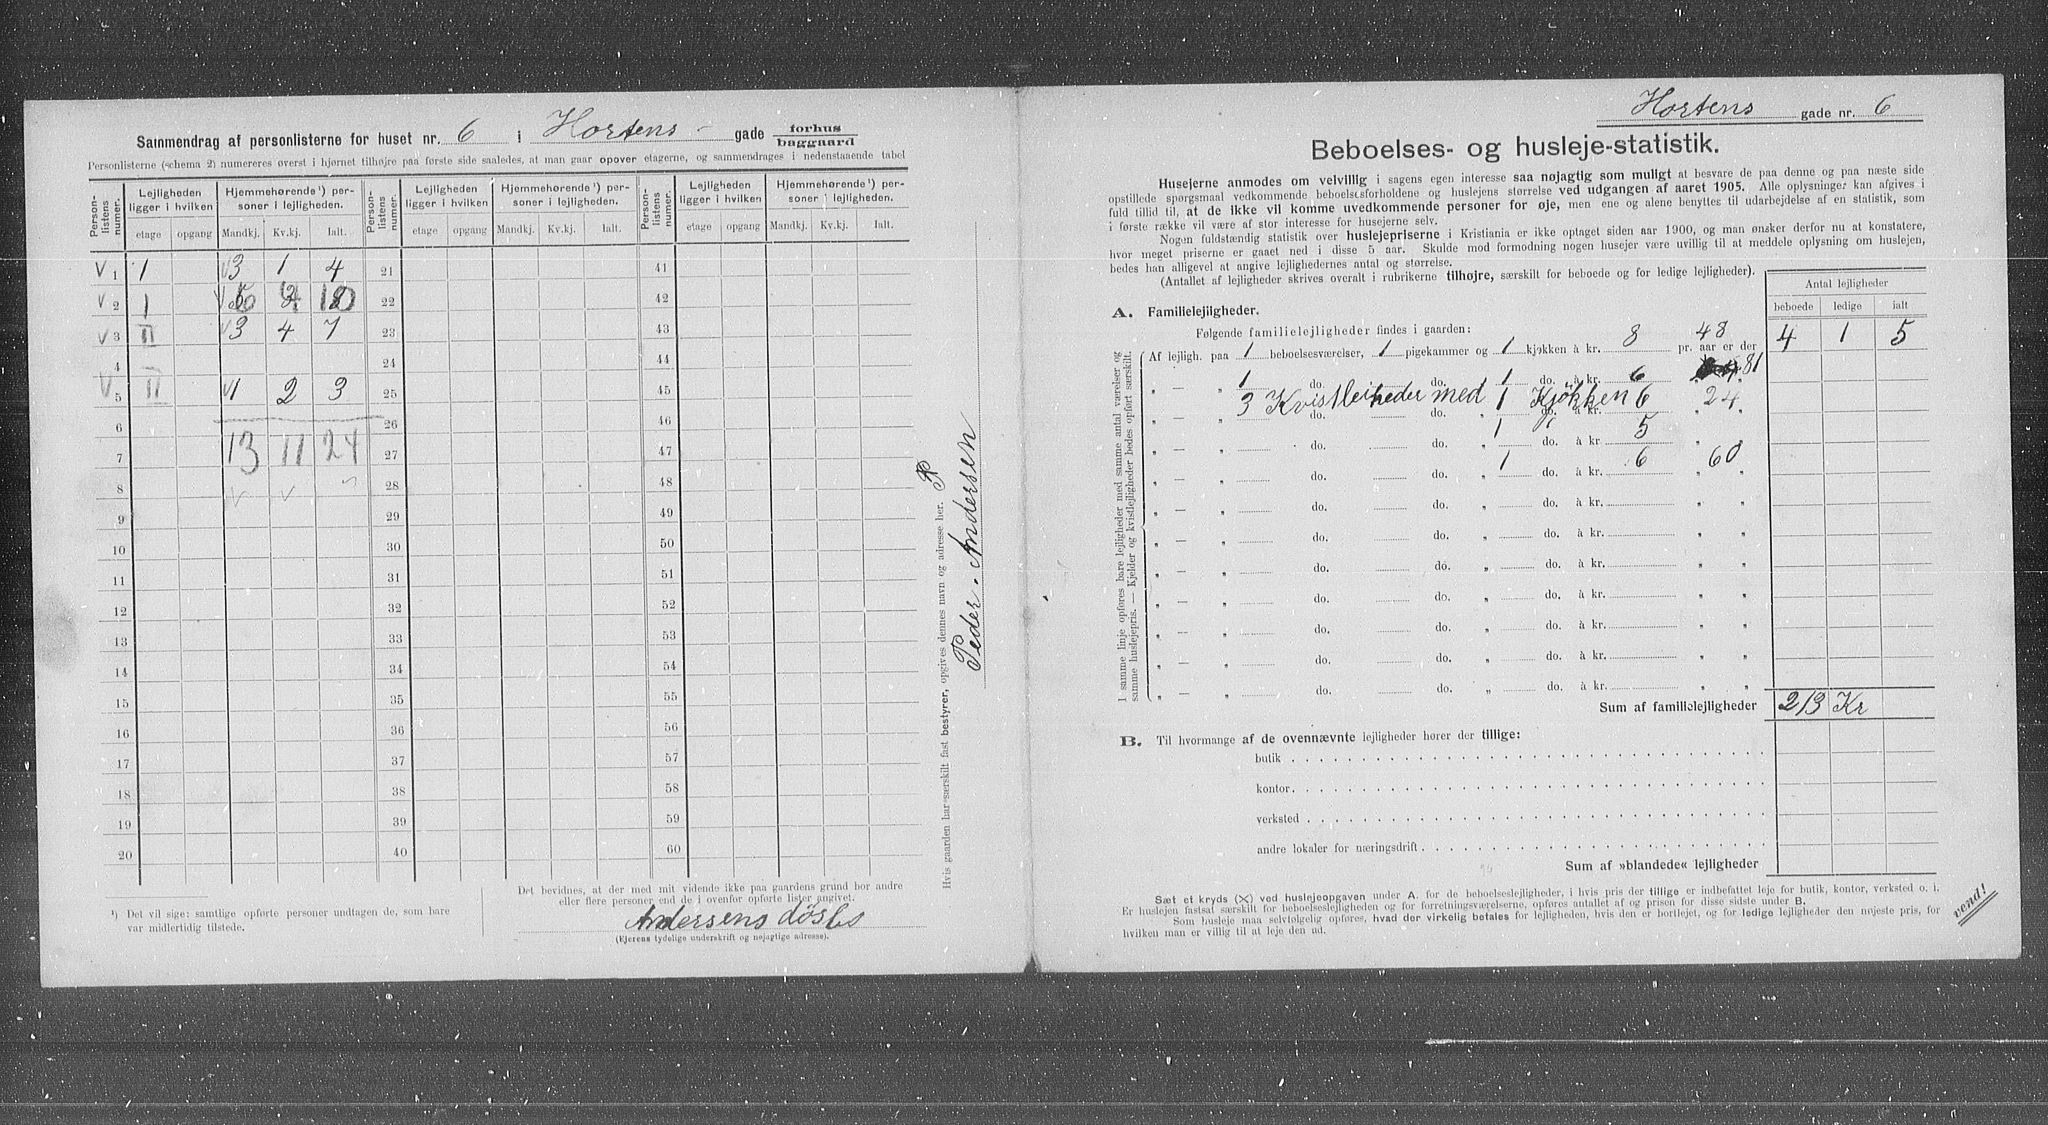 Sammendrag af personlisterne for huset nr. 6 i Hortens- gade forhus
baggaard
Personlisterne (schema 2) numereres øverst i hjørnet tilhøjre paa første side saaledes, at man gaar opover etagerne, og sammendrages i nedenstaaende tabel
Person-listens nummer. Lejligheden ligger i hvilken Hjemmehørende ¹) personer i lejligheden. Person-listens nummer. Lejligheden ligger i hvilken Hjemmehørende ¹) personer i lejligheden. Person-listens nummer. Lejligheden ligger i hvilken Hjemmehørende ¹) personer i lejligheden.
etage opgang Mandkj. Kv.kj. Ialt. etage opgang Mandkj. Kv.kj. Ialt. etage opgang Mandkj. Kv.kj. Ialt.
V 1 1 V3 1 4 21 41
V 2 1 V 6 4 10 22 42
V 3 II V3 4 7 23 43
4 24 44
V 5 II V1 2 3 25 45
6 26 46
7 13 11 24 27 47
8 V V 28 48
9 29 49
10 30 50
11 31 51
12 32 52
13 33 53
14 34 54
15 35 55
16 36 56
17 37 57
18 38 58
19 39 59
20 40 60
¹) Det vil sige: samtlige opførte personer undtagen de, som bare
var midlertidig tilstede.
Det bevidnes, at der med mit vidende ikke paa gaardens grund bor andre
eller flere personer end de i ovenfor opførte lister angivet.
Andersens
(Ejerens tydelige underskrift og nøjagtige adresse).
Hvis gaarden har særskilt fast bestyrer, opgives dennes navn og adresse her.
Peder. Andersen
Hortens gade nr. 6
Beboelses- og husleje-statistik.
Husejerne anmodes om velvillig i sagens egen interesse saa nøjagtig som muligt at besvare de paa denne og paa næste side
opstillede spørgsmaal vedkommende beboelsesforholdene og huslejens størrelse ved udgangen af aaret 1905. Alle oplysninger kan afgives i
fuld tillid til, at de ikke vil komme uvedkommende personer for øje, men ene og alene benyttes til udarbejdelse af en statistik, som
i første række vil være af stor interesse for husejerne selv.
Nogen fuldstændig statistik over huslejepriserne i Kristiania er ikke optaget siden aar 1900, og man ønsker derfor nu at konstatere,
hvor meget priserne er gaaet ned i disse 5 aar. Skulde mod formodning nogen husejer være uvillig til at meddele oplysning om huslejen,
bedes han alligevel at angive lejlighedernes antal og størrelse.
(Antallet af lejligheder skrives overalt i rubrikerne tilhøjre, særskilt for beboede og for ledige lejligheder).
Antal lejligheder
beboede ledige ialt
A. Familielejligheder.
Følgende familielejligheder findes i gaarden:
I samme linje opføres bare lejligheder med samme antal værelser og
samme huslejepris. — Kjelder og kvistlejligheder bedes opført særskilt.
Af lejligh. paa 1 beboelsesværelser, 1 pigekammer og 1 kjøkken à kr. 8 pr. aar er der 48 4 1 5
„ — „ 1 do. do. 1 do. à kr. 6 „ 81
„ — „ 3 Kvistleiheder med 1 Kjökken 6 „ 24
do. do. do. à kr.
„ — „ do. do. 1 do. à kr. 5 „
„ — „ do. do. 1 do. à kr. 6 „ 60
„ — „ do. do. „ do. à kr. „ „
„ — „ do. do. „ do. à kr. „ „
„ — „ do. do. „ do. à kr. „ „
„ — „ do. do. „ do. à kr. „ „
„ — „ do. do. „ do. à kr. „ „
„ — „ do. do. „ do. à kr. „ „
„ — „ do. do. „ do. à kr. „ „
Sum af familielejligheder 213 Kr
B. Til hvormange af de ovennævnte lejligheder hører der tillige:
butik
kontor
verksted
andre lokaler for næringsdrift
Sum af »blandede« lejligheder
Sæt et kryds (X) ved huslejeopgaven under A. for de beboelseslejligheder, i hvis pris der tillige er indbefattet leje for butik, kontor, verksted o. l.
Er huslejen fastsat særskilt for beboelseslejligheden og for forretningsværelserne, opføres antallet af og prisen for disse sidste under B.
Som husleje maa selvfølgelig opføres, hvad der virkelig betales for lejligheden, hvis den er bortlejet, og for ledige lejligheder den nøjeste pris, for
hvilken man er villig til at leje den ud.
vend!